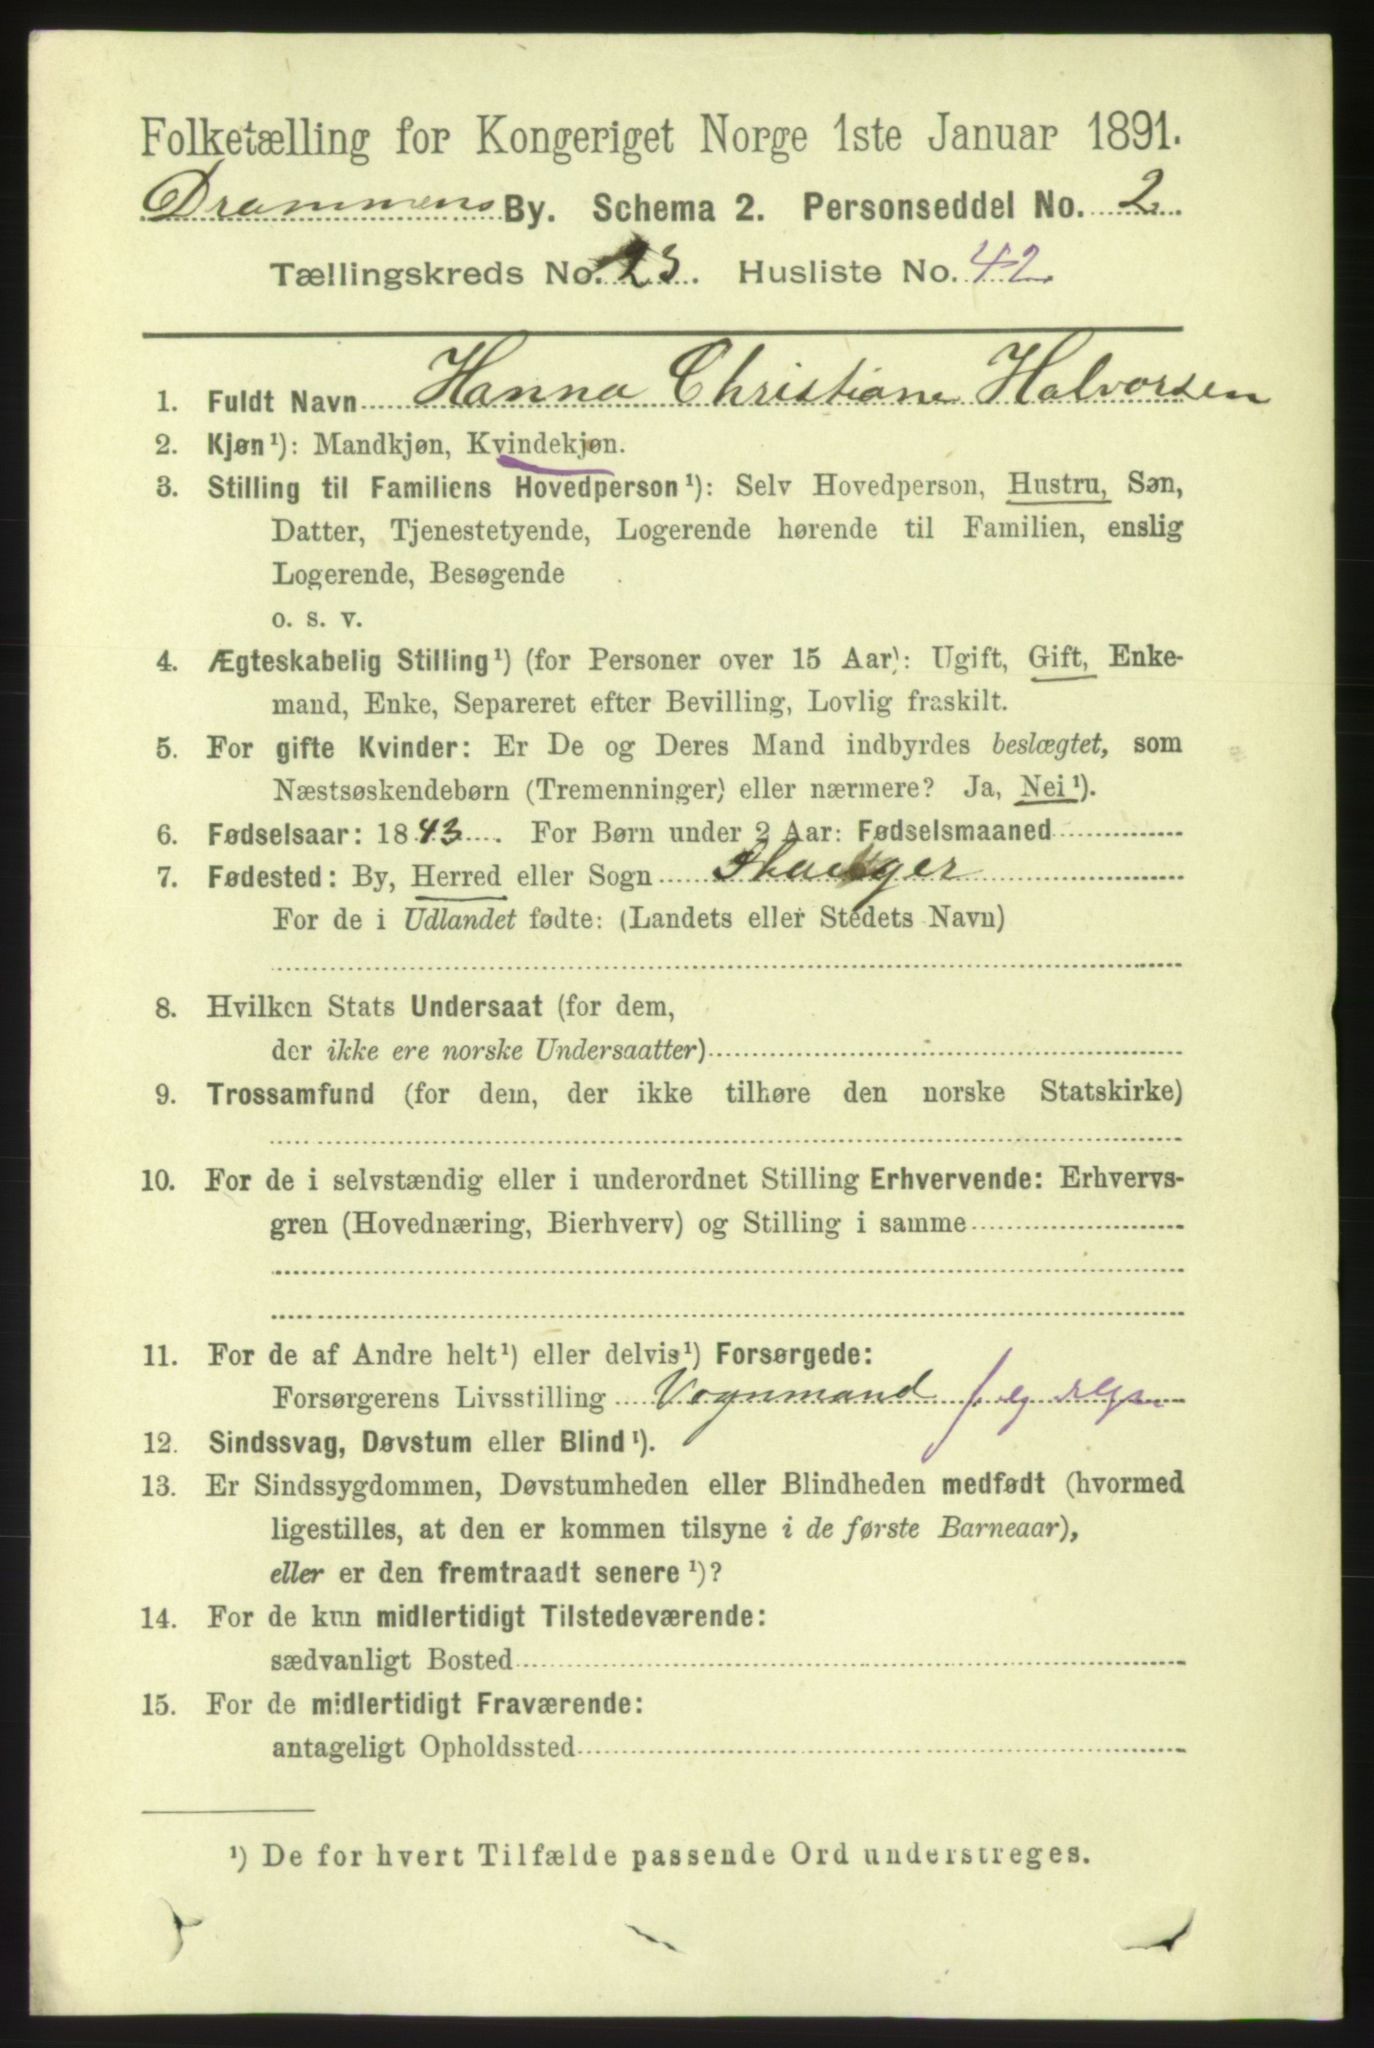 Folketælling for Kongeriget Norge 1ste Januar 1891.
Drammens By. Schema 2. Personseddel No. 2
Tællingskreds No. 23. Husliste No. 42
1. Fuldt Navn Hanna Christiane Halvorsen
2. Kjøn¹): Mandkjøn, Kvindekjøn.
3. Stilling til Familiens Hovedperson¹): Selv Hovedperson, Hustru, Søn,
Datter, Tjenestetyende, Logerende hørende til Familien, enslig
Logerende, Besøgende
o. s. v.
4. Ægteskabelig Stilling¹) (for Personer over 15 Aar): Ugift, Gift, Enke-
mand, Enke, Separeret efter Bevilling, Lovlig fraskilt.
5. For gifte Kvinder: Er De og Deres Mand indbyrdes beslægtet, som
Næstsøskendebørn (Tremenninger) eller nærmere? Ja, Nei¹).
6. Fødselsaar: 1843. For Børn under 2 Aar: Fødselsmaaned
7. Fødested: By, Herred eller Sogn
For de i Udlandet fødte: (Landets eller Stedets Navn)
8. Hvilken Stats Undersaat (for dem,
der ikke ere norske Undersaatter)
9. Trossamfund (for dem, der ikke tilhøre den norske Statskirke)
10. For de i selvstændig eller i underordnet Stilling Erhvervende: Erhvervs-
gren (Hovednæring, Bierhverv) og Stilling i samme
11. For de af Andre helt¹) eller delvis¹) Forsørgede:
Forsørgerens Livsstilling Vognmand
12. Sindssvag, Døvstum eller Blind¹).
13. Er Sindssygdommen, Døvstumheden eller Blindheden medfødt (hvormed
ligestilles, at den er kommen tilsyne i de første Barneaar),
eller er den fremtraadt senere¹)?
14. For de kun midlertidigt Tilstedeværende:
sædvanligt Bosted
15. For de midlertidigt Fraværende:
antageligt Opholdssted
¹) De for hvert Tilfælde passende Ord understreges.